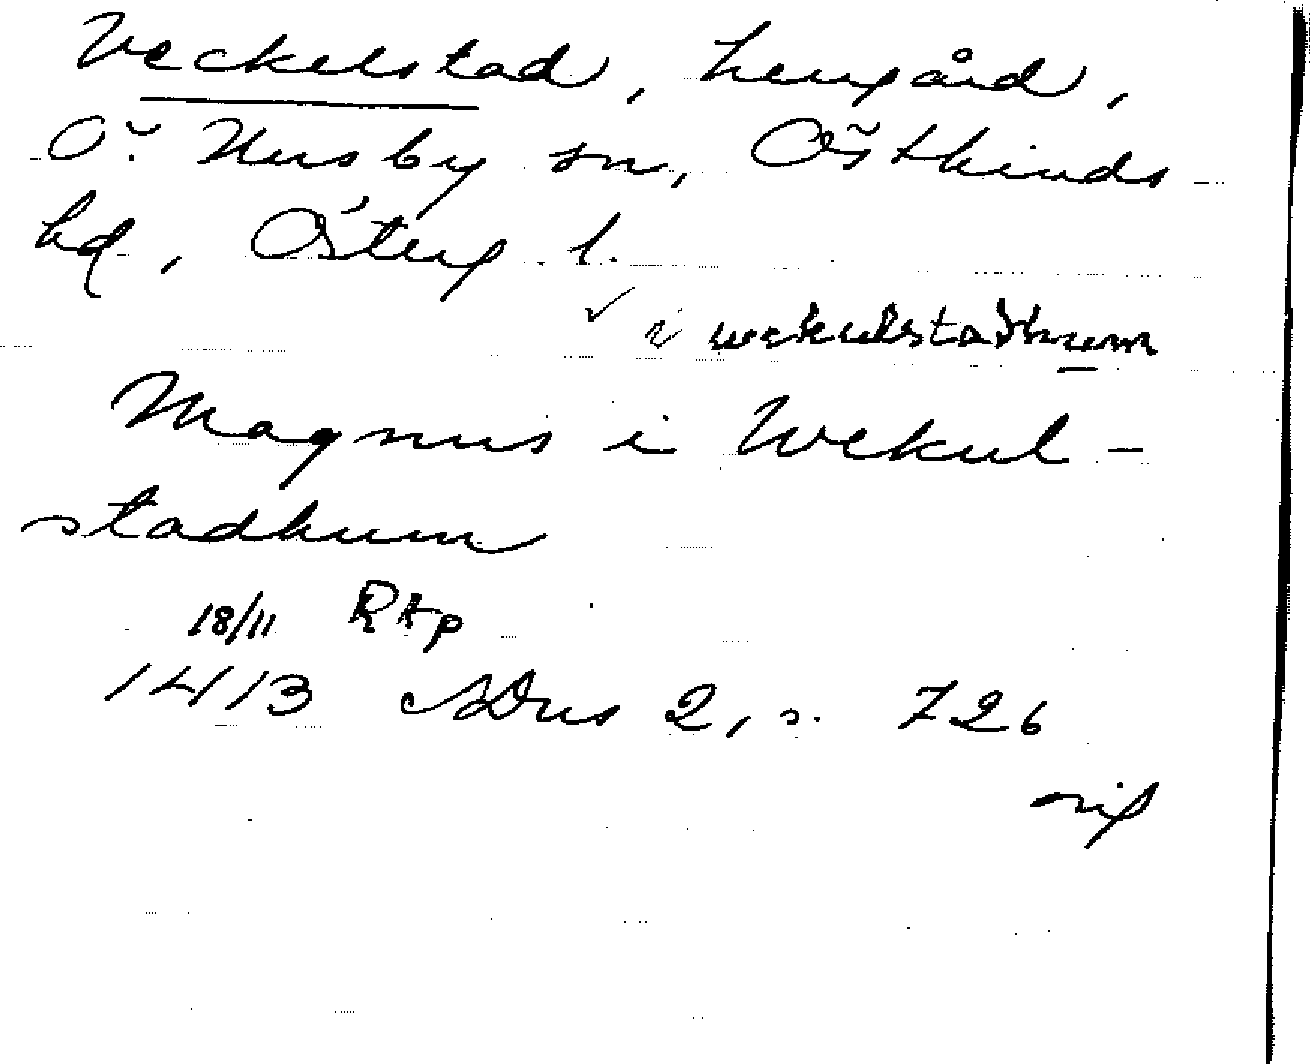 Veckelstad, herrgård,
Ö. Husby sn, Östkinds
hd, Österg l.
✓ i wekulstadhum
Magnus i Wekul-
stadhum
18/11 Rtp
1413 SDns 2, s. 726